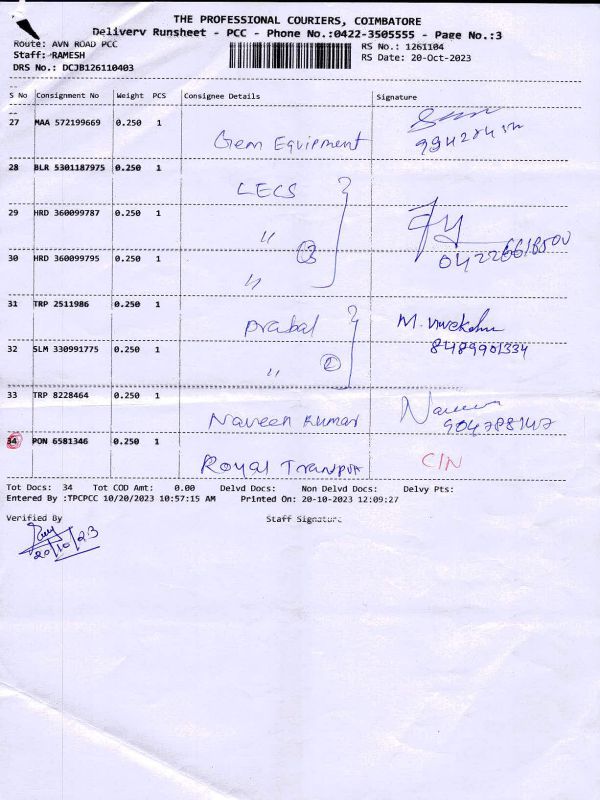 THE PROFESSIONAL COURIERS, COIMBATORE
Delivery Runsheet - PCC - Phone No.:0422-3505555 - Page No.:3
Route: AVN ROAD PCC
Staff: RAMESH
DRS No.: DCJB126110403
RS No.: 1261104
RS Date: 20-Oct-2023
S No Consignment No Weight PCS Consignee Details Signature
27 MAA 572199669 0.250 1 Gem Equipment
28 BLR 5301187975 0.250 1 LECS
29 HRD 360099787 0.250 1 "
③ 04226618500
30 HRD 360099795 0.250 1 "
31 TRP 2511986 0.250 1 Prabal M. Vivekahn
8489901334
32 SLM 330991775 0.250 1 " ②
33 TRP 8228464 0.250 1 Naveen Kumar Naveen
904788147
34 PON 6581346 0.250 1 Royal C/N
Tot Docs: 34 Tot COD Amt: 0.00 Delvd Docs: Non Delvd Docs: Delvy Pts:
Entered By :TPCPCC 10/20/2023 10:57:15 AM Printed On: 20-10-2023 12:09:27
Verified By Staff Signature
20/10/23